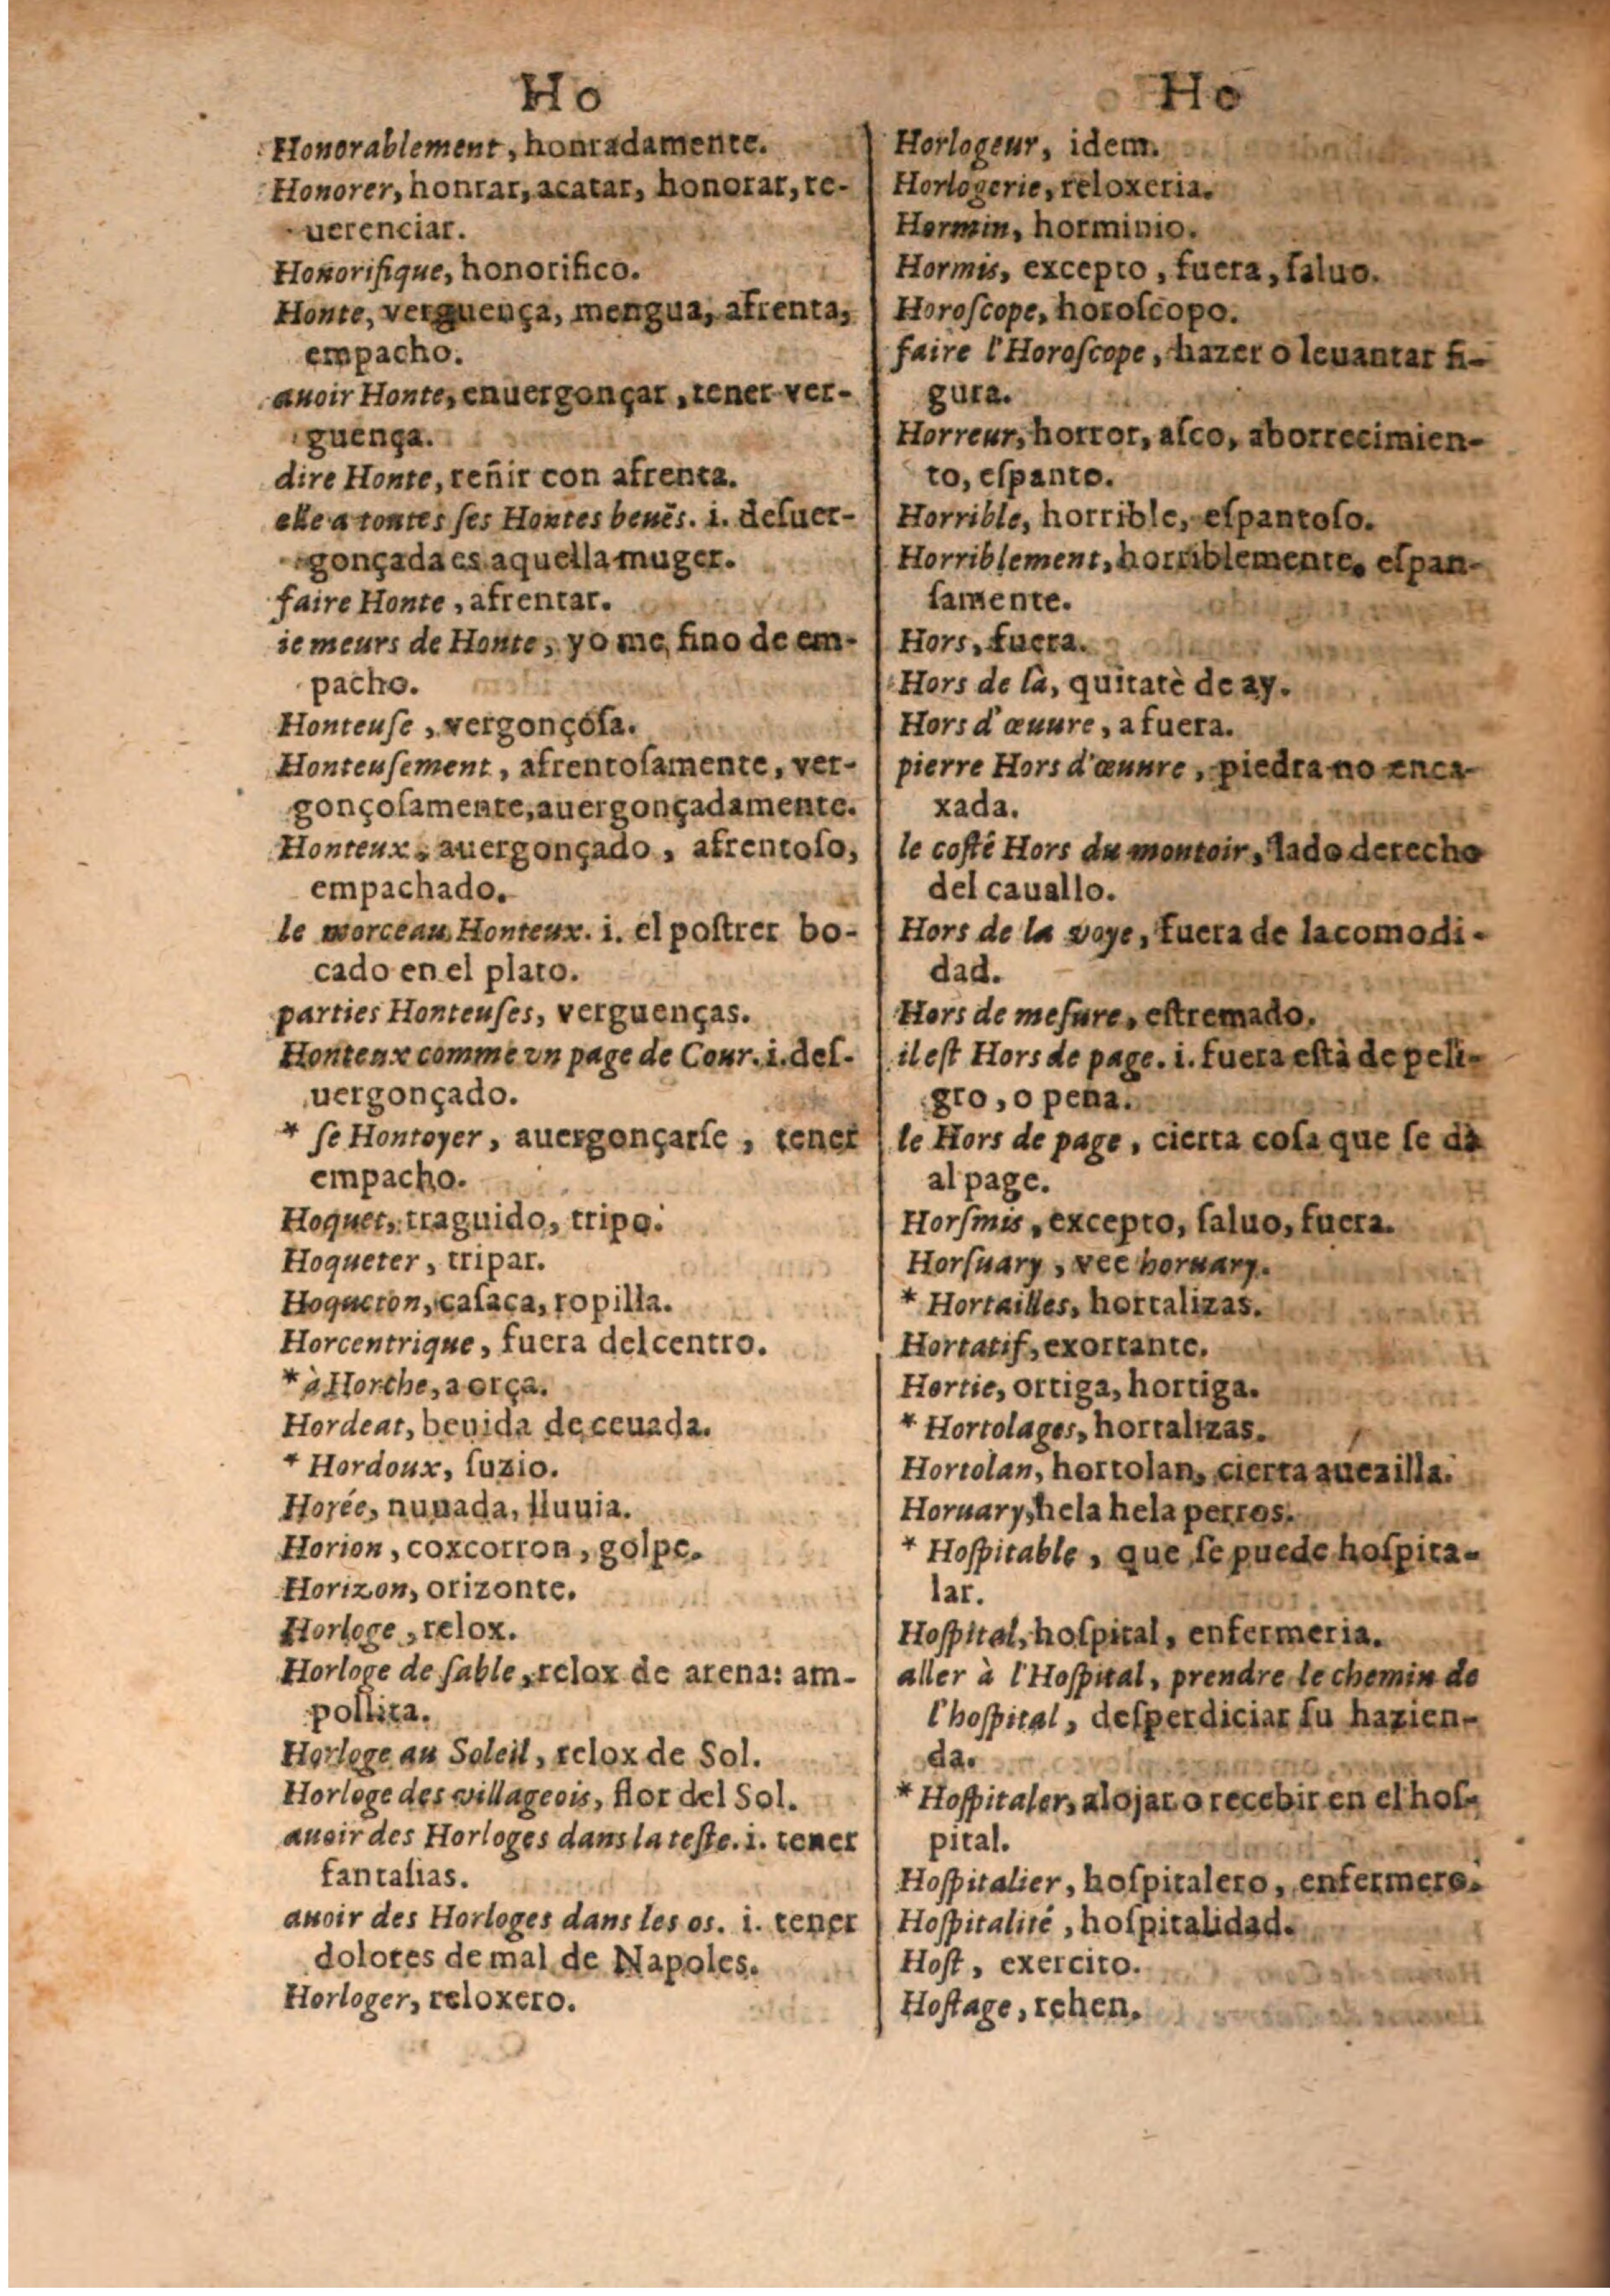 Ho
Honorablement, honradamente.
Honorer, honrar, acatar, honorar, re-
uerenciar.
Honorifique, honorifico.
Honte, verguença, mengua, afrenta,
empacho.
auoir Honte, enuergonçar, tener ver-
guença.
dire Honte, reñir con afrenta.
elle a toutes ses Hontes beuës. i. desuer-
gonçada es aquella muger.
faire Honte, afrentar.
ie meurs de Honte, yo me fino de em-
pacho.
Honteuſe, vergonçóſa.
Honteuſement, afrentoſamente, ver-
gonçoſamente, auergonçadamente.
Honteux, auergonçado, afrentoſo,
empachado.
le morceau Honteux. i. el poſtrer bo-
cado en el plato.
parties Honteuſes, verguenças.
Honteux comme vn page de Cour. i. deſ-
uergonçado.
* ſe Hontoyer, auergonçarſe, tener
empacho.
Hoquet, traguido, tripo.
Hoqueter, tripar.
Hoqueton, caſaca, ropilla.
Horcentrique, fuera del centro.
* à Horche, a orça.
Hordeat, beuida de ceuada.
* Hordoux, ſuzio.
Horée, nuuada, lluuia.
Horion, coxcorron, golpe.
Horizon, orizonte.
Horloge, relox.
Horloge de ſable, relox de arena: am-
pollita.
Horloge au Soleil, relox de Sol.
Horloge des villageois, flor del Sol.
auoir des Horloges dans la teſte. i. tener
fantaſias.
auoir des Horloges dans les os. i. tener
dolores de mal de Napoles.
Horloger, reloxero.
Ho
Horlogeur, idem.
Horlogerie, reloxeria.
Hormin, horminio.
Hormis, excepto, fuera, ſaluo.
Horoſcope, horoſcopo.
faire l'Horoſcope, hazer o leuantar fi-
gura.
Horreur, horror, aſco, aborrecimien-
to, eſpanto.
Horrible, horrible, eſpantoſo.
Horriblement, horriblemente, eſpan-
ſamente.
Hors, fuera.
Hors de là, quitatè de ay.
Hors d'œuure, a fuera.
pierre Hors d'œuure, piedra no enca-
xada.
le coſté Hors du montoir, lado derecho
del cauallo.
Hors de la voye, fuera de la comodi-
dad.
Hors de meſure, eſtremado.
il eſt Hors de page. i. fuera eſtà de peli-
gro, o pena.
le Hors de page, cierta coſa que ſe dà
al page.
Horſmis, excepto, ſaluo, fuera.
Horſuary, vee horuary.
* Hortailles, hortalizas.
Hortatif, exortante.
Hortie, ortiga, hortiga.
* Hortolages, hortalizas.
Hortolan, hortolan, cierta auezilla.
Horuary, hela hela perros.
* Hoſpitable, que ſe puede hoſpita-
lar.
Hoſpital, hoſpital, enfermeria.
aller à l'Hoſpital, prendre le chemin de
l'hoſpital, deſperdiciar ſu hazien-
da.
* Hoſpitaler, alojar o recebir en el hoſ-
pital.
Hoſpitalier, hoſpitalero, enfermero.
Hoſpitalité, hoſpitalidad.
Hoſt, exercito.
Hoſtage, rehen.